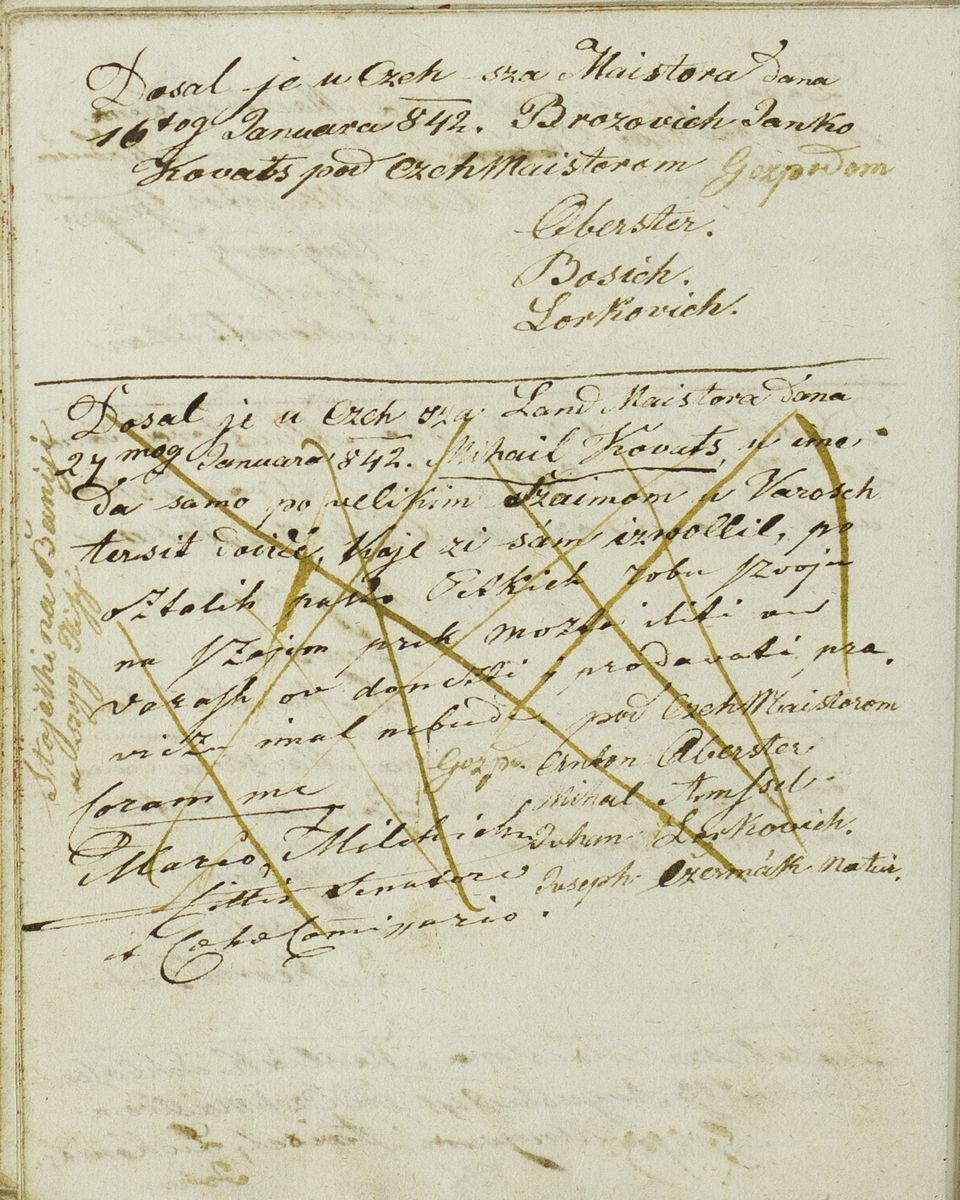 Dosal je u Czeh sza Maistora dana
16tog Januara 842. Brozovich Janko
Kovats pod Czeh Maistorom Gozpodom
Aberster.
Bosich.
Lorkovich.
Dosal je u Czeh sza Land Maistora dana
27mog Januara 842. Mihail Kovats, u ime
da samo po velikim Szaimom u Varosch
tersit doići, koje zi sám izvollil, po
osztalih pako Petkich robu szvoju
na szajem prek mozta iliti vu
varash ov donesti, i prodavati pra
vicze imal nebude pod Czeh Maistorom
Gozp. Anton Aberster
Mihal
Johan Lorkovich.
Joseph Czermák Notár.
Coram me
Mario Milchich
Senatore
et Cehe Comissario.
Stojeći na Baniji